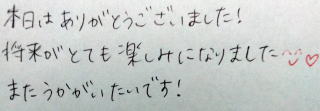 本日はありがとうございました!
将来がとても楽しみになりました
またうかがいたいです!